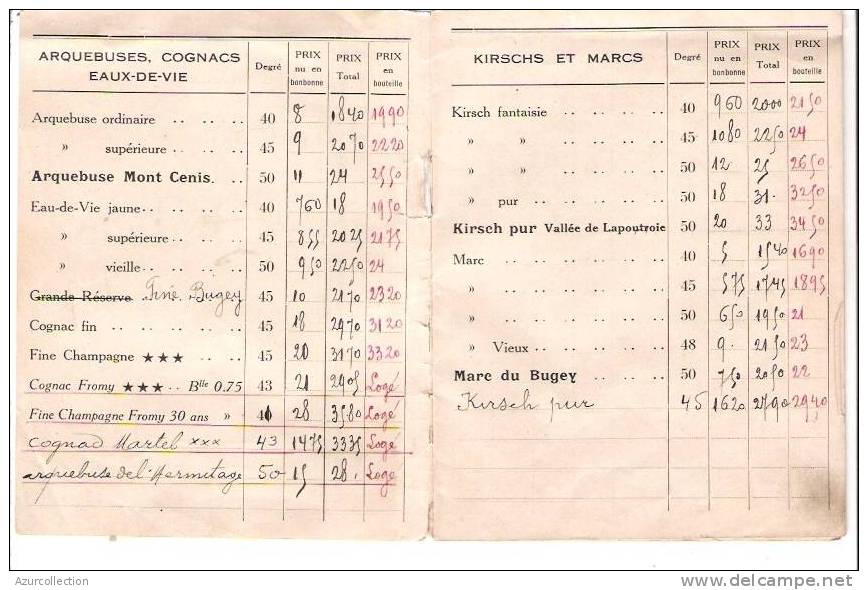 ARQUEBUSES, COGNACS
EAUX-DE-VIE
Degré
PRIX
nu en
bonbonne
PRIX
Total
PRIX
en
bouteille
Arquebuse ordinaire .. .. .. 40 8 1840 1990
» supérieure .. .. .. 45 9 2070 2220
Arquebuse Mont Cenis. .. 50 11 24 2550
Eau-de-Vie jaune .. .. .. .. 40 760 18 1950
» supérieure .. .. .. 45 855 2025 2175
» vieille .. .. .. .. 50 950 2250 24
Grande Réserve Fine Bugey 45 10 2170 2320
Cognac fin .. .. .. .. .. 45 18 2970 3120
Fine Champagne ★★★ .. .. 45 20 3170 3320
Cognac Fromy ★★★ .. Blle 0.75 43 21 2905 Logé
Fine Champagne Fromy 30 ans » 28 3580 Logé
Cognac Martel xxx 43 1475 3335 Logé
arquebuse del'Hermitage 50 15 28. Logé
KIRSCHS ET MARCS
Degré
PRIX
nu en
bonbonne
PRIX
Total
PRIX
en
bouteille
Kirsch fantaisie .. .. .. .. 40 960 2000 2150
» » .. .. .. .. 45 1080 2250 24
» » .. .. .. .. 50 12 25 2650
» pur .. .. .. .. .. 50 18 31. 3250
Kirsch pur Vallée de Lapoutroie 50 20 33 3450
Marc .. .. .. .. .. .. 40 5 1540 1690
» .. .. .. .. .. .. 45 575 1745 1895
» .. .. .. .. .. .. 50 650 1950 21
» Vieux .. .. .. .. .. 48 9. 2150 23
Marc du Bugey .. .. .. 50 750 2050 22
Kirsch pur 45 1620 2790 2940
Azurcollection
delcampe.net